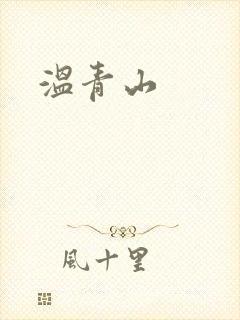 溫青山
風十里